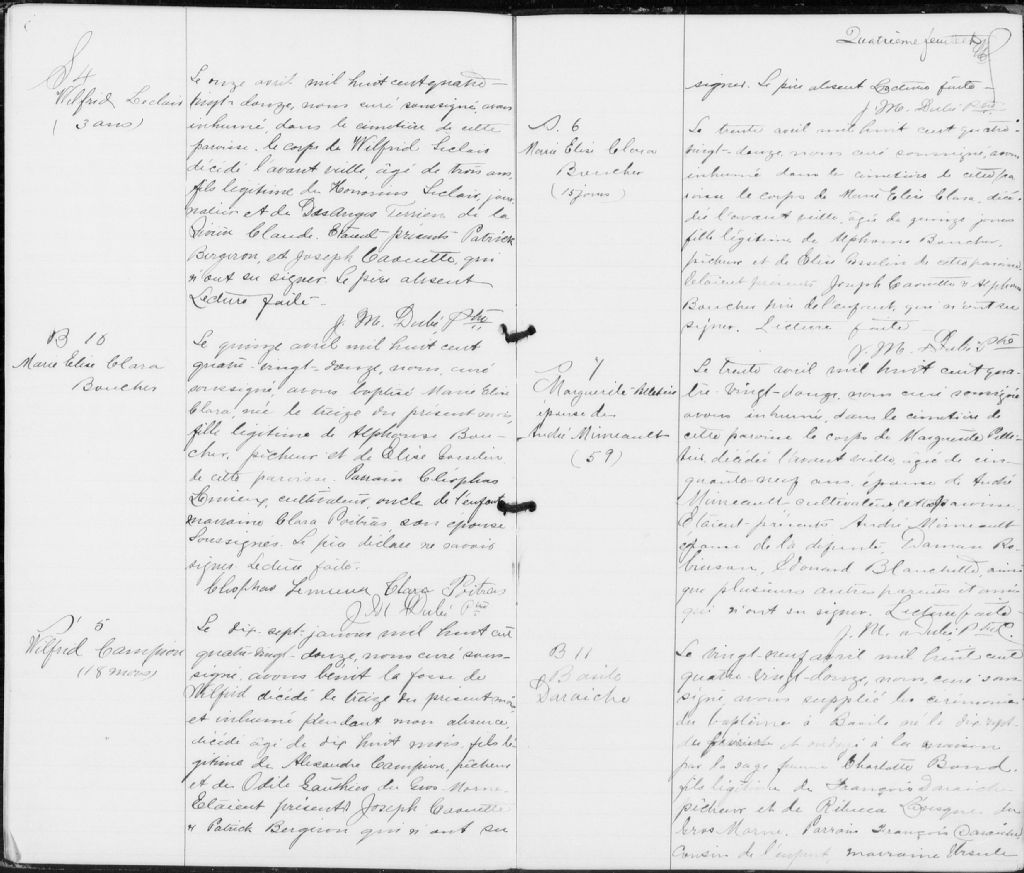 S 4
Wilfrid Leclair
(3 ans)
Le onze avril mil huit cent quatre-
vingt-douze, nous curé soussigné avons
inhumé, dans le cimetière de cette
paroisse, le corps de Wilfrid Leclair
décédé l'avant veille, âgé de trois ans,
fils légitime de Honorius Leclair, jour
nalier et de DesAnges Terrien de la
Rivière Claude. Etaient présents Patrick
Bergeron, et Joseph Caouette, qui
n'ont su signer. Le père absent
Lecture faite -
J. M. Dubé Ptre
B 10
Marie Elise Clara
Boucher
Le quinze avril mil huit cent
quatre-vingt-douze, nous, curé
soussigné, avons baptisé Marie Elise
Clara, née le treize du présent mois,
fille légitime de Alphonse Bou-
cher, pêcheur et de Elise Gosselin
de cette paroisse. Parrain Cléophas
Lemieux, cultivateur, oncle de l'enfant,
marraine Clara Poitras, son épouse
Soussignés. Le père déclare ne savoir
signer Lecture faite.
Cléophas Lemieux Clara Poitras
J. M. Dubé Ptre
S 5
Wilfrid Campion
(18 mois)
Le dix-sept janvier mil huit cent
quatre-vingt-douze, nous curé sous-
signé, avons bénit la fosse de
Wilfrid décédé le treize du présent mois
et inhumé pendant mon absence,
décédé âgé de dix huit mois, fils lé
gitime de Alexandre Campion, pêcheur
et de Odile Gauthier du Gros-Morne.
Etaient présents Joseph Caouette
& Patrick Bergeron qui n'ont su
Quatrième feuillet
signer. Le père absent Lecture faite -
J. M. Dubé Ptre
S. 6
Marie Elise Clara
Boucher
(15 jours)
Le trente avril mil huit cent quatre-
vingt-douze, nous curé soussigné, avons
inhumé dans le cimetière de cette pa
roisse le corps de Marie Elise Clara, décé
dée l'avant veille, âgée de quinze jours
fille légitime de Alphonse Boucher,
pêcheur et de Elise Gosselin de cette paroisse
Etaient présents Joseph Caouette & Alphonse
Boucher père de l'enfant, qui n'ont su
signer. Lecture faite
J. M. Dubé Ptre
S. 7
Marguerite Pelletier
épouse de
André Mimeault
(59)
Le trente avril mil huit cent qua-
tre-vingt-douze, nous curé soussigné
avons inhumé, dans le cimetière de
cette paroisse le corps de Marguerite Pelle-
tier, décédée l'avant veille, âgée de cin-
quante neuf ans, épouse de André
Mimeault cultivateur de cette paroisse.
Etaient présents André Mimeault
époux de la défunte, Damase Ro-
binson, Edouard Blanchette, ainsi
que plusieurs autres parents et amis
qui n'ont su signer. Lecture faite
J. M. Dubé Ptre
B 11
Basile
Daraiche
Le vingt neuf avril mil huit cent
quatre-vingt-douze, nous, curé sous
signé avons suppléé les cérémonies
du baptême à Basile né le dix-sept
du présent et ondoyé à la maison
par la sage femme Charlotte Bond.
fils légitime de François Daraiche
pêcheur et de Rébecca du
Gros Morne. Parrain François Daraiche,
cousin de l'enfant, marraine Ursule